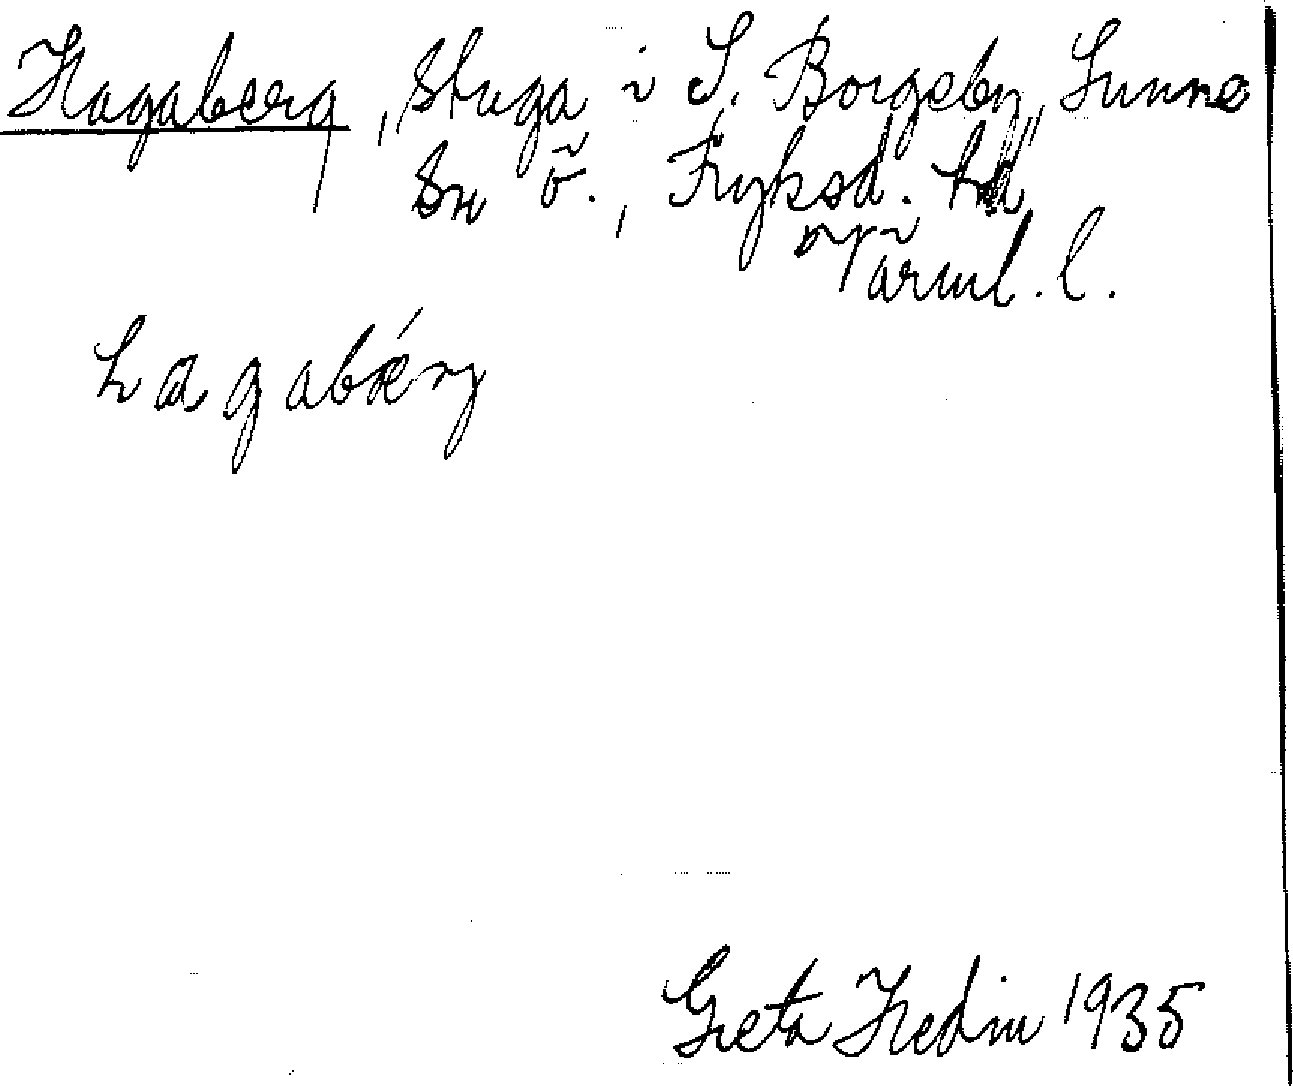 Hagaberg, Stuga i S. Borgeby, Sunne
Sn ö., Fryksd. hd
Värml. l.
hagabǽrj
Greta Hedin 1935